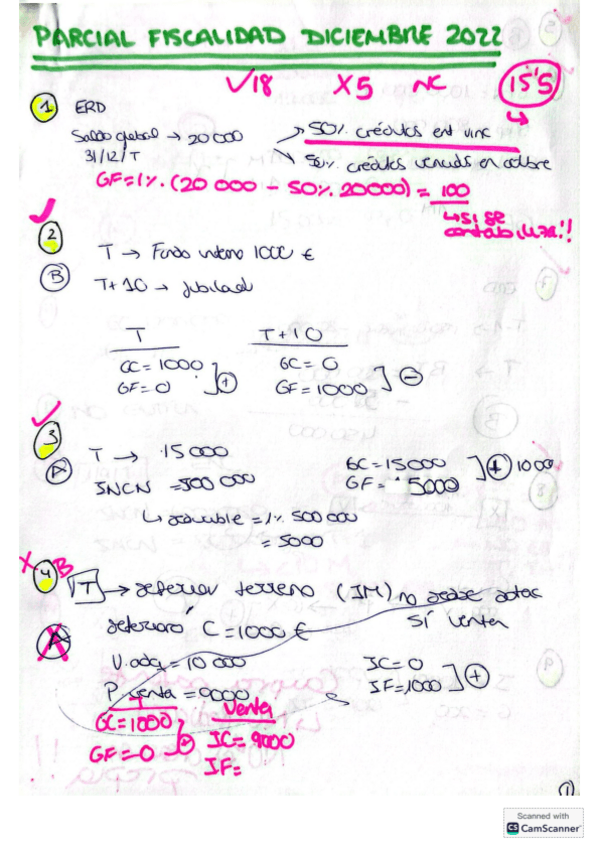 PARCIAL FISCALIDAD DICIEMBRE 2022
✓18 X5 NC 15'5
1 ERD
Saldo global → 20 000 → 50% créditos ent vinc
31/12/T → 50% créditos vencidos en octubre
GF = 1%. (20 000 - 50%. 20000) = 100
↳ si se contabiliza!!
2
T → Fondo interno 1000 €
B
T+10 → jubilad
T T+10
GC = 1000 GC = 0
GF = 0 ] + GF = 1000 ] -
3
T → 15 000
A GC = 15000
INCN = 500 000 GF = 5000 ] + 1000
↳ deducible = 1%. 500 000
= 5000
X 4 B
T → deterior terreno (IM) no
SÍ venta
A deterioro C = 1000 €
V. adq = 10 000 IC = 0
P. venta = 9000 IF = 1000 ] +
T Venta
GC = 1000 IC = 9000
GF = 0 + IF =
1
Scanned with
CS CamScanner